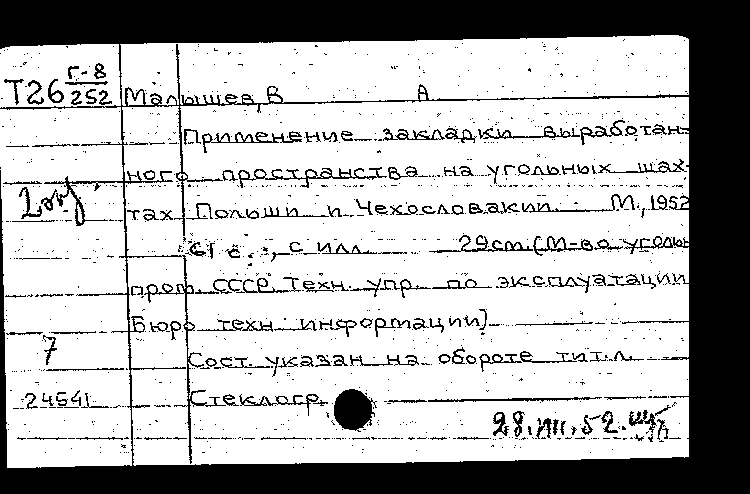 Т26 Г-8/252 Малышев, В А
Применение закладки выработан-
ного пространства на угольных шах-
тах Польши и Чехословакии. М., 1952
с., с илл. 29 см. (М-во угольн
пром. СССР. Техн. упр. по эксплуатации
Бюро техн. информации)
7
Сост. указан на обороте тит. л.
24541 Стеклогр.
28.VIII.52.